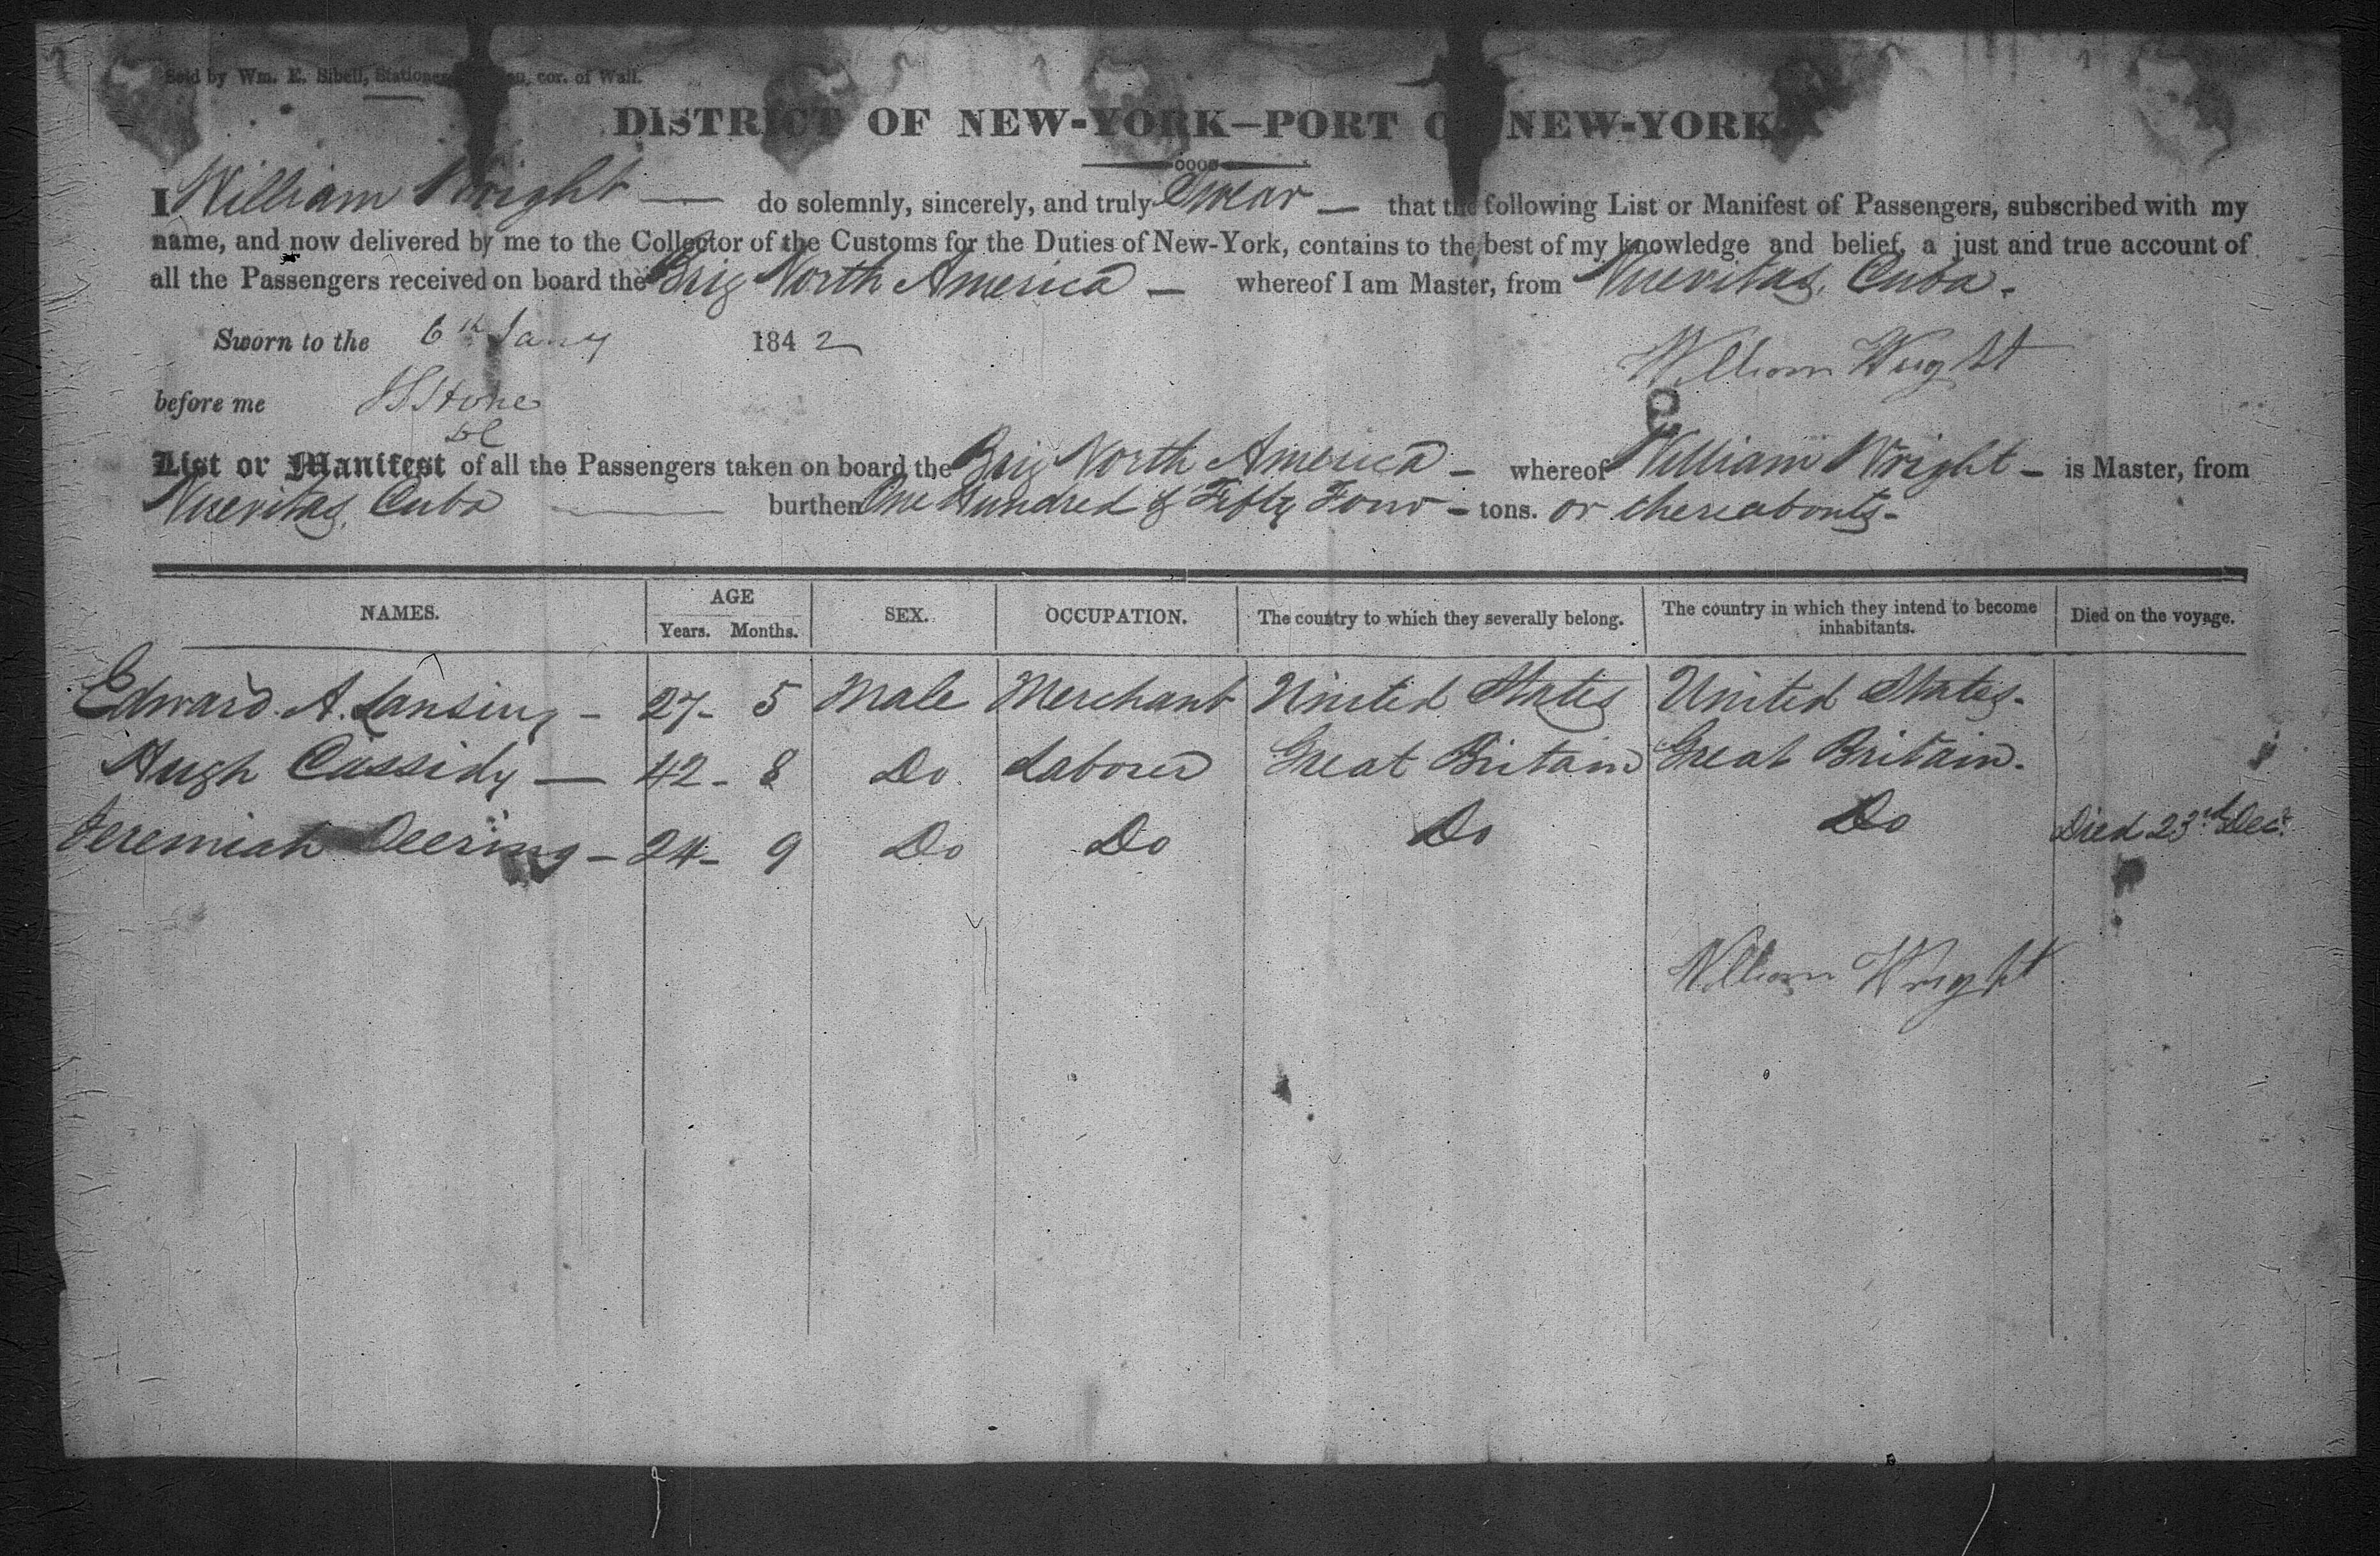 Sold by Wm. E. Sibell, Stationer, cor. of Wall.
DISTRICT OF NEW-YORK—PORT OF NEW-YORK.
I William Wright — do solemnly, sincerely, and truly Swear — that the following List or Manifest of Passengers, subscribed with my
name, and now delivered by me to the Collector of the Customs for the Duties of New-York, contains to the best of my knowledge and belief, a just and true account of
all the Passengers received on board the Brig North America — whereof I am Master, from Nuevitas, Cuba.
Sworn to the 6th Jany 1842
William Wright
before me Stone
List or Manifest of all the Passengers taken on board the Brig North America — whereof William Wright — is Master, from
Nuevitas, Cuba — burthen One Hundred & Fifty Four — tons. or thereabouts.
NAMES. AGE Years. Months. SEX. OCCUPATION. The country to which they severally belong. The country in which they intend to become inhabitants. Died on the voyage.
Edward A. Lansing — 27 — 5 Male Merchant United States United States.
Hugh Cassidy — 42 — 8 Do Laborer Great Britain Great Britain.
Jeremiah Deering — 24 — 9 Do Do Do Do Died 23rd Dec.
William Wright